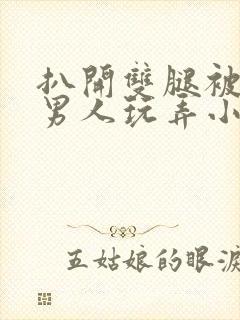 扒開雙腿被
男人玩弄小
五姑娘的眼淚